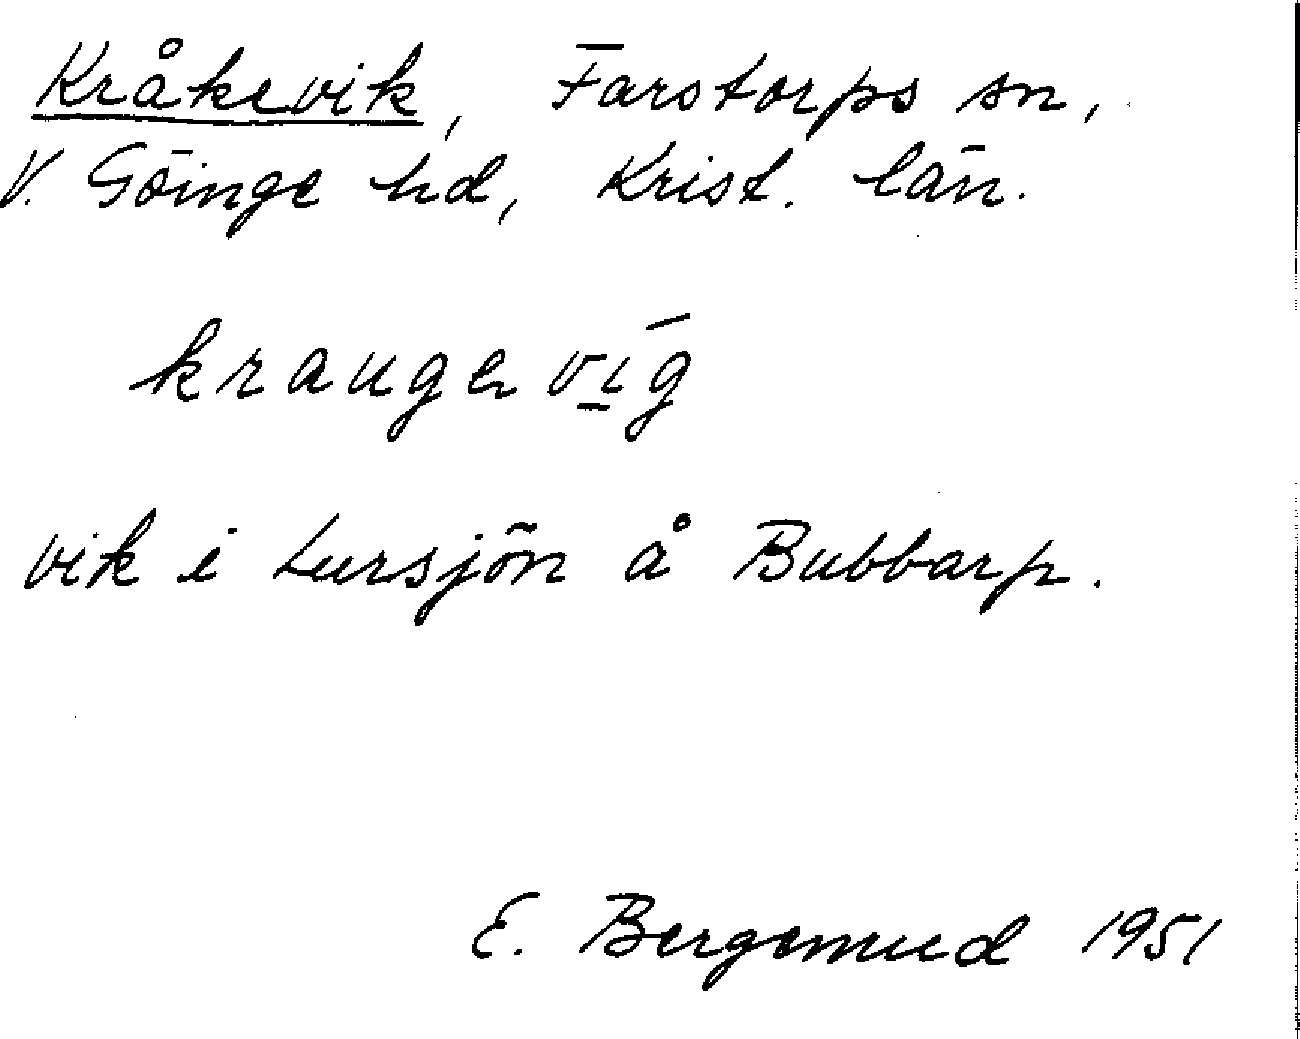 Kråkevik, Farstorps sn,
V. Göinge hd, Krist. län.
kraugervig
vik i Lursjön å Bubbarp.
E. Bergemud 1951